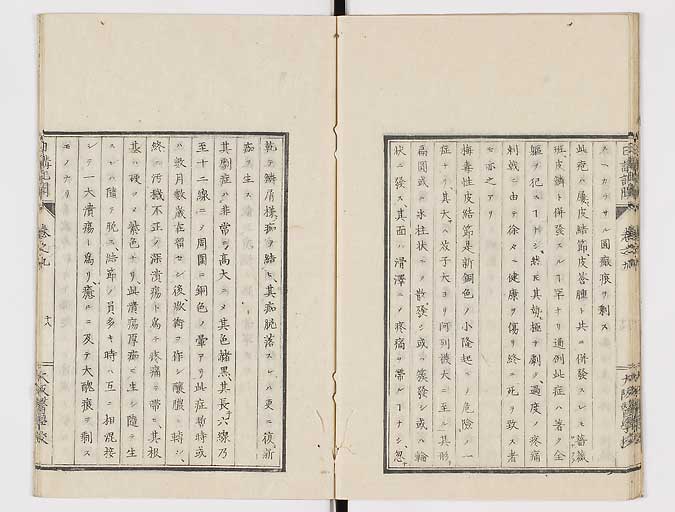 スヘカラサル圓瘢痕ヲ剩ス
此疱ハ屢皮結節皮答腫ト共ニ併發スレ𪜈薔薇
班皮癬ト併發スルヿ罕ナリ通例此症ハ著ク全
軀ヲ犯スヿナシ然𪜈其勢極テ劇ク過度ノ疼痛
刺戟ニ由テ徐々ニ健康ヲ傷リ終ニ死ヲ致ス者
モ亦之アリ
梅毒性皮結節是新銅色ノ小隆起ニノ危險ノ一
症ナリ其大ハ麻子大ヨリ阿列襪大ニ至ル其形
扁圓或ハ氷柱狀ニノ散發シ或ハ簇發シ或ハ輪
狀ニ發ス其面ハ滑澤ニノ疼痛ヲ帶ルヿナシ忽
乾テ鱗屑樣痂ヲ結ヒ其痂脫落スレハ更ニ復新
痂ヲ生ス
其劇症ハ非常ニ高大ニノ其色赭黑其長六線乃
至十二線ニノ周圍ニ銅色ノ暈アリ此症動時或
ハ數月數歲在留セシ後焮衝ヲ作シ釀膿ニ轉シ
終ニ汚穢不正ノ深潰瘍ト爲テ疼痛ヲ帶ヒ其根
基ハ硬クノ紫色ナリ此潰瘍厚痂ヲ生シ隨テ生
スレハ隨テ脫ス結節ノ員多キ時ハ互ニ相混接
シテ一大潰瘍ト爲リ癒ルニ及テ大醜痕ヲ剩ス
モノナリ
日講記聞 卷之九 十八 大阪醫學校